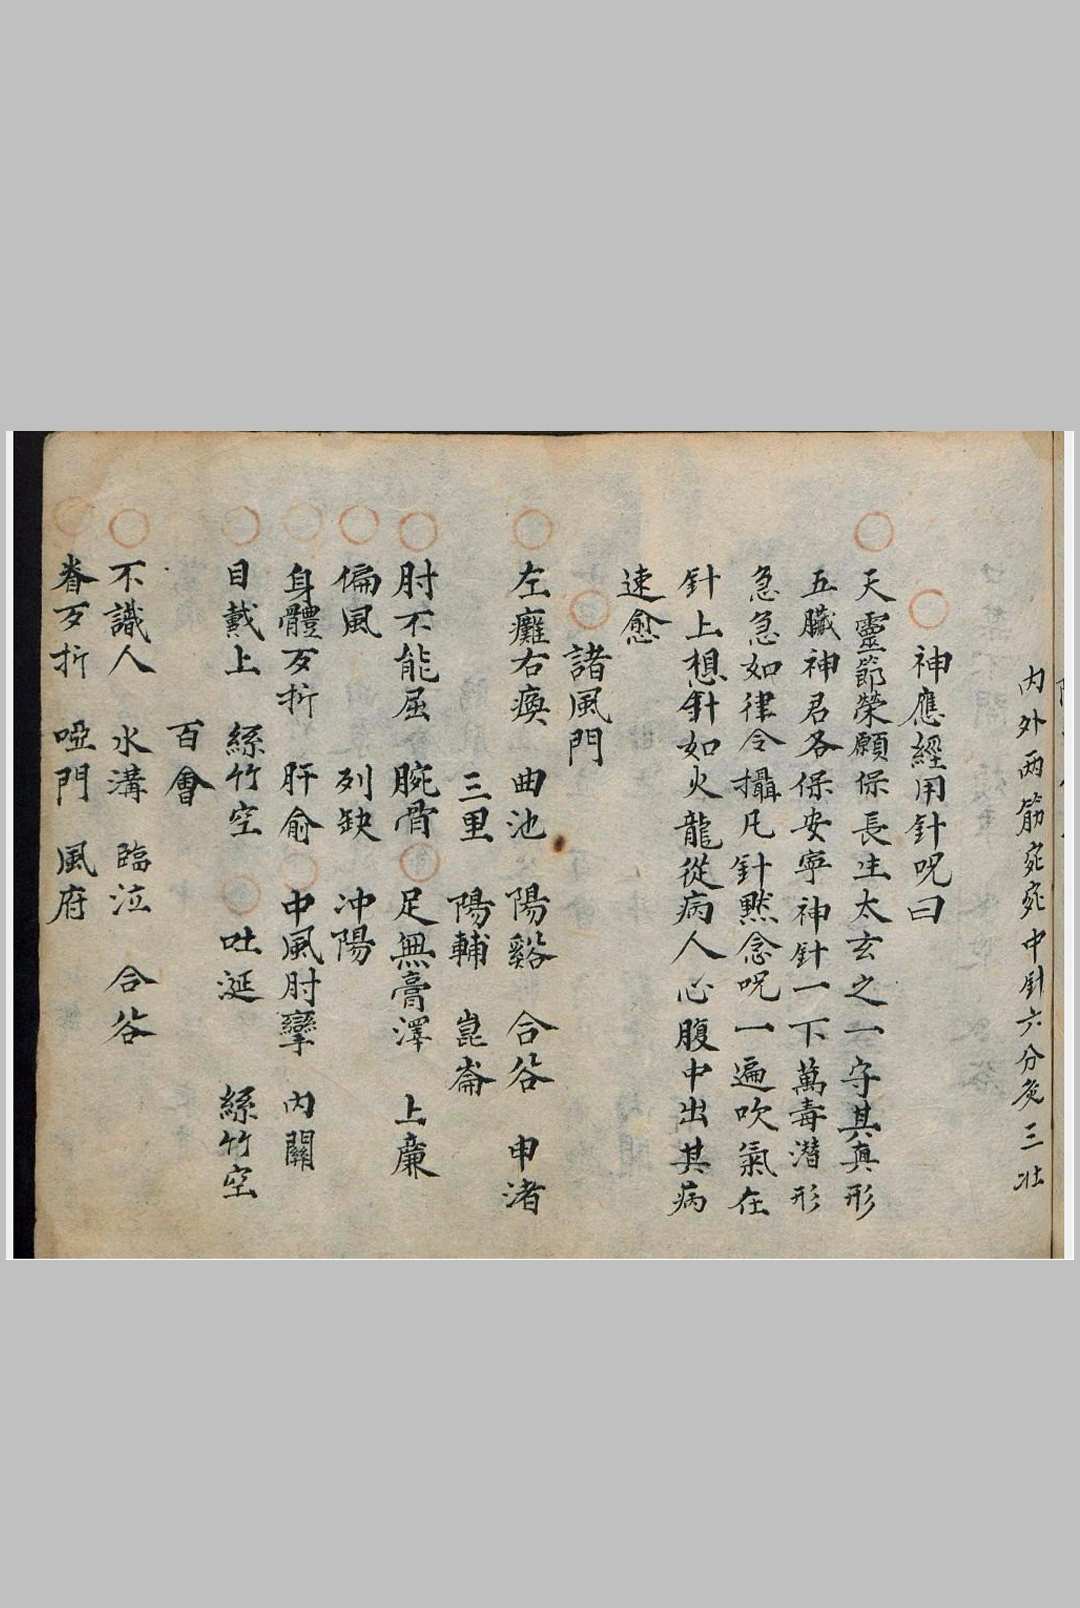 内外兩筋宛宛中針六分灸三壯
神應經用針呪曰
天靈節榮願保長生太玄之一守其真形
五臟神君各保安寧神針一下萬毒潛形
急急如律令攝凡針黙念呪一遍吹氣在
針上想針如火龍從病人心腹中出其病
速愈
諸風門
左癱右瘓 曲池 陽谿 合谷 申渚
三里 陽輔 崑崙
肘不能屈 腕骨 足無膏澤 上廉
偏風 列缺 冲陽
身體歹折 肝俞 中風肘攣 内關
目戴上 絲竹空 吐涎 絲竹空
百會
不識人 水溝 臨泣 合谷
脊歹折 啞門 風府